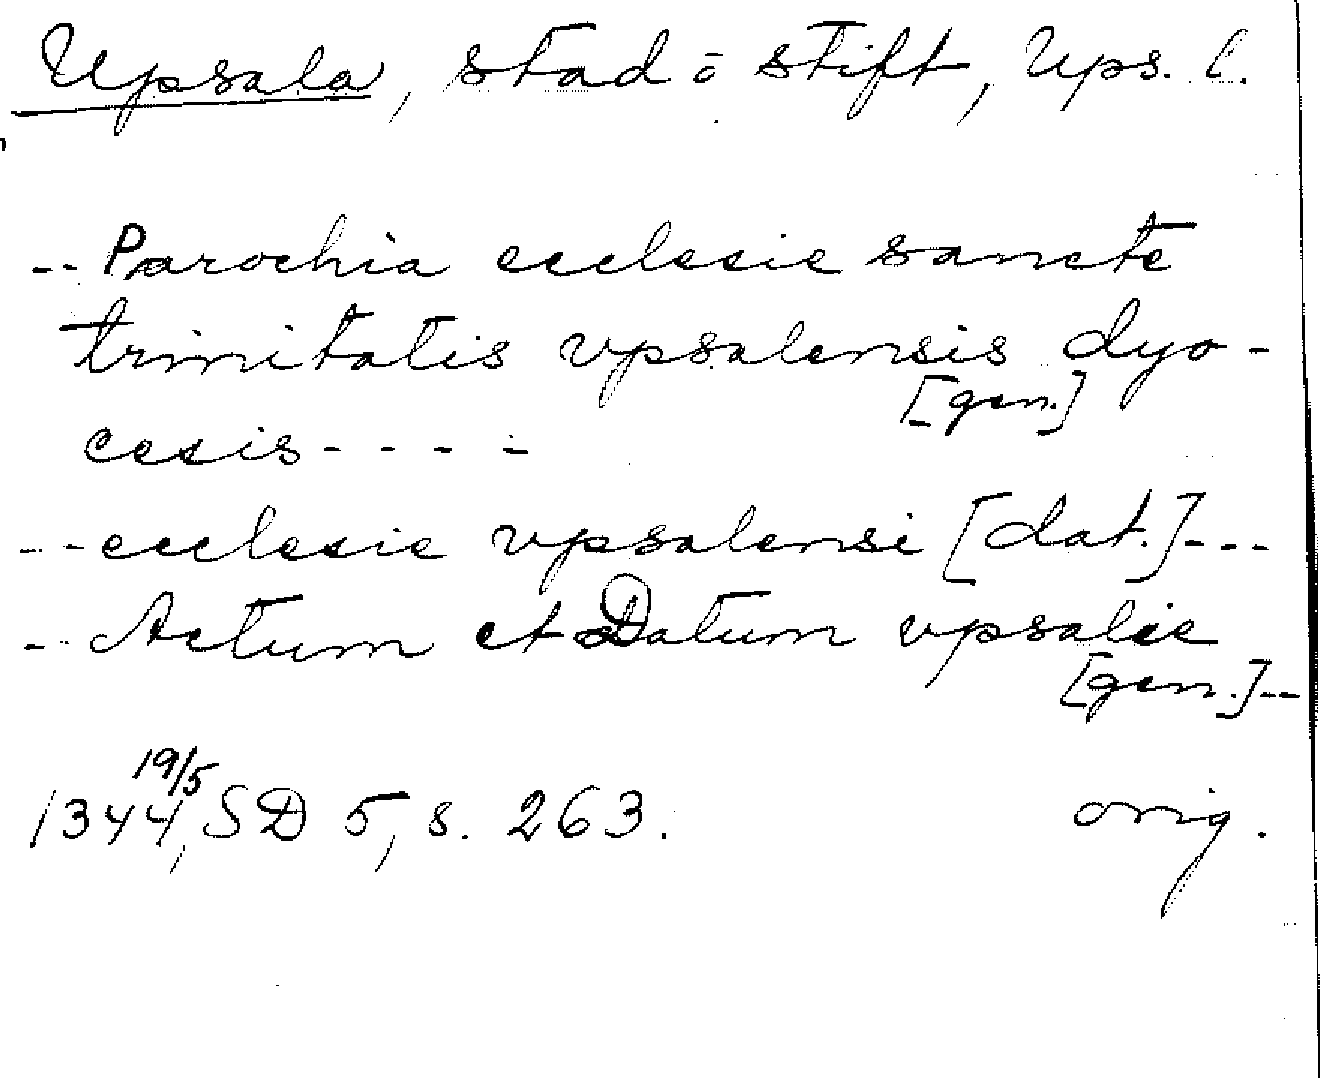 Upsala, stad ō stift, Ups. l.
-- Parochia ecclesie sancte
trinitatis vpsalensis dyo-
[gen.]
cesis - - - -
-- ecclesie vpsalensi [dat.] ---
-- Actum et Datum vpsalie
[gen.] --
19/5
1344, SD 5, s. 263. orig.